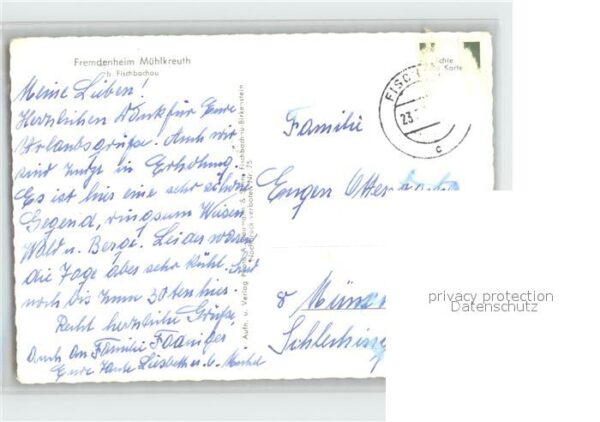 Fremdenheim Mühlkreuth
b. Fischbachau
Meine Lieben!
Herzlichen Dank für Eure
Urlaubsgrüße. Auch wir
sind jetzt in Erholung.
Es ist hier eine sehr schöne
Gegend, ringsum Wiesen
Wald u. Berge. Leider waren
die Tage aber sehr kühl. Sind
noch bis zum 30ten hier.
Recht herzliche Grüße,
auch an Familie
Eure Tante Liesbeth u.
Aufn. u. Verlag Fischbachau-Birkenstein
Nachdruck verboten Nr. 75
chte
Karte
FISC
23.
c
Familie
Eugen
8 Münc
privacy protection
Datenschutz